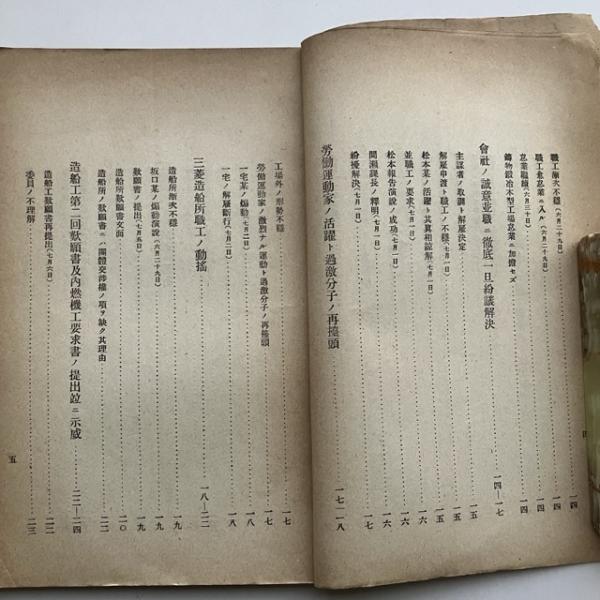 職工漸次不穩(六月二十九日)……一四
職工怠業ニ入ル(六月二十九日)……一四
怠業繼續(六月三十日)……一四
鑄物鍛冶木型工場怠業ニ加擔セズ……一四
會社ノ誠意並職ニ徹底一旦紛議解決……一四—一七
主謀者ノ取調ト解雇決定……一五
解雇申渡ト職工ノ不穩(七月一日)……一五
松本某ノ活躍ト其眞相諒解(七月一日)……一六
並職工ノ要求(七月一日)……一六
松本報告演說ノ成功(七月一日)……一六
間瀨課長ノ釋明(七月一日)……一七
紛擾解決(七月一日)
勞働運動家ノ活躍ト過激分子ノ再擡頭……一七—一八
工場外ノ形勢不穩……一七
勞働運動家ノ激烈ナル運動ト過激分子ノ再擡頭……一七
一宅某ノ煽動(七月二日)……一八
一宅ノ解雇斷行(七月三日)……一八
三菱造船所職工ノ動搖……一八—二二
造船所漸次不穩……一九
坂口某ノ煽動演說(六月二十九日)……一九
歎願書ノ提出(七月五日)……一九
造船所歎願書文面……二〇
造船所ノ歎願書ニハ團體交涉權ノ項ヲ缺ク其理由
造船工第二回歎願書及內燃機工要求書ノ提出竝ニ示威……二二—二四
造船工歎願書再提出(七月六日)……二二
委員ノ不理解……二三
五